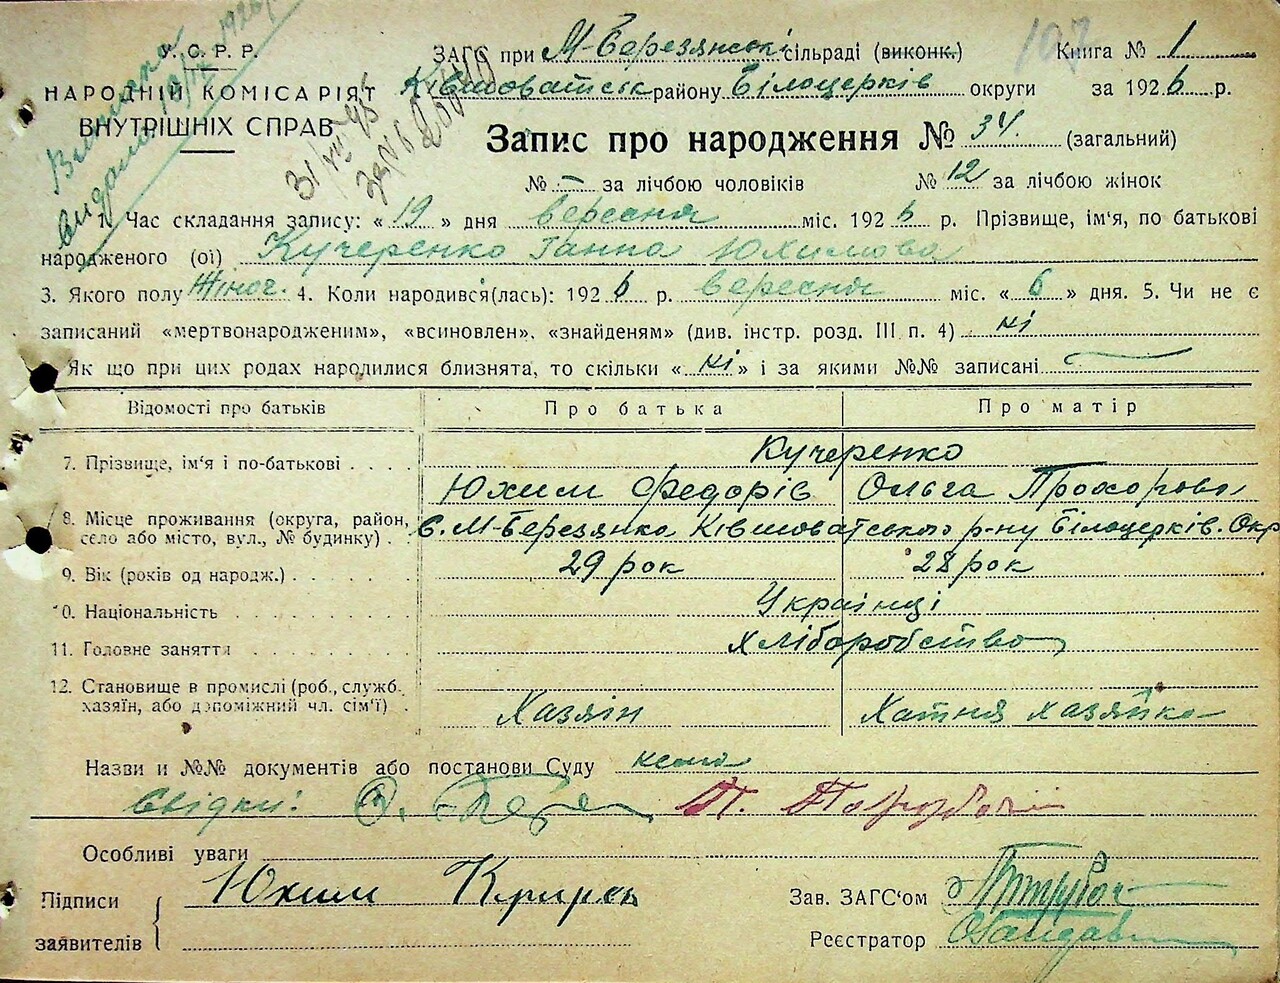 У.С.Р.Р.
НАРОДНІЙ КОМІСАРІЯТ
ВНУТРІШНІХ СПРАВ
Виписка
видана 19/IX 1926р
31/VII 45
107
ЗАГС при М-Березянські сільраді (виконк.) Книга № 1
Ківшоватськ району Білоцерків округи за 1926 р.
Запис про народження № 34. (загальний)
№ — за лічбою чоловіків № 12 за лічбою жінок
1. Час складання запису: «19» дня вересня міс. 1926 р. Прізвище, ім'я, по батькові
народженого (ої) Кучеренко Ганна Юхимова
3. Якого полу Жіноч. 4. Коли народився(лась): 1926 р. вересня міс. «6» дня. 5. Чи не є
записаний «мертвонародженим», «всиновлен», «знайденям» (див. інстр. розд. III п. 4) ні
Як що при цих родах народилися близнята, то скільки «ні» і за якими №№ записані —
Відомості про батьків Про батька Про матір
7. Прізвище, ім'я і по-батькові . . . . Кучеренко
Юхим Федорів Ольга Прохорова
8. Місце проживання (округа, район, село або місто, вул., № будинку) . с. М-Березянка Ківшоватського р-ну Білоцерків. Окр
9. Вік (років од народж.) . . . . . . 29 рок 28 рок
10. Національність . . . . . . . . . Українці
11. Головне заняття . . . . . . . . хліборобство
12. Становище в промислі (роб., служб. хазяїн, або допоміжний чл. сім'ї) . Хазяін Хатня хазяйка
Назви и №№ документів або постанови Суду нема
Свідки:
Особливі уваги
Підписи Юхим Зав. ЗАГС'ом
заявителів Реєстратор